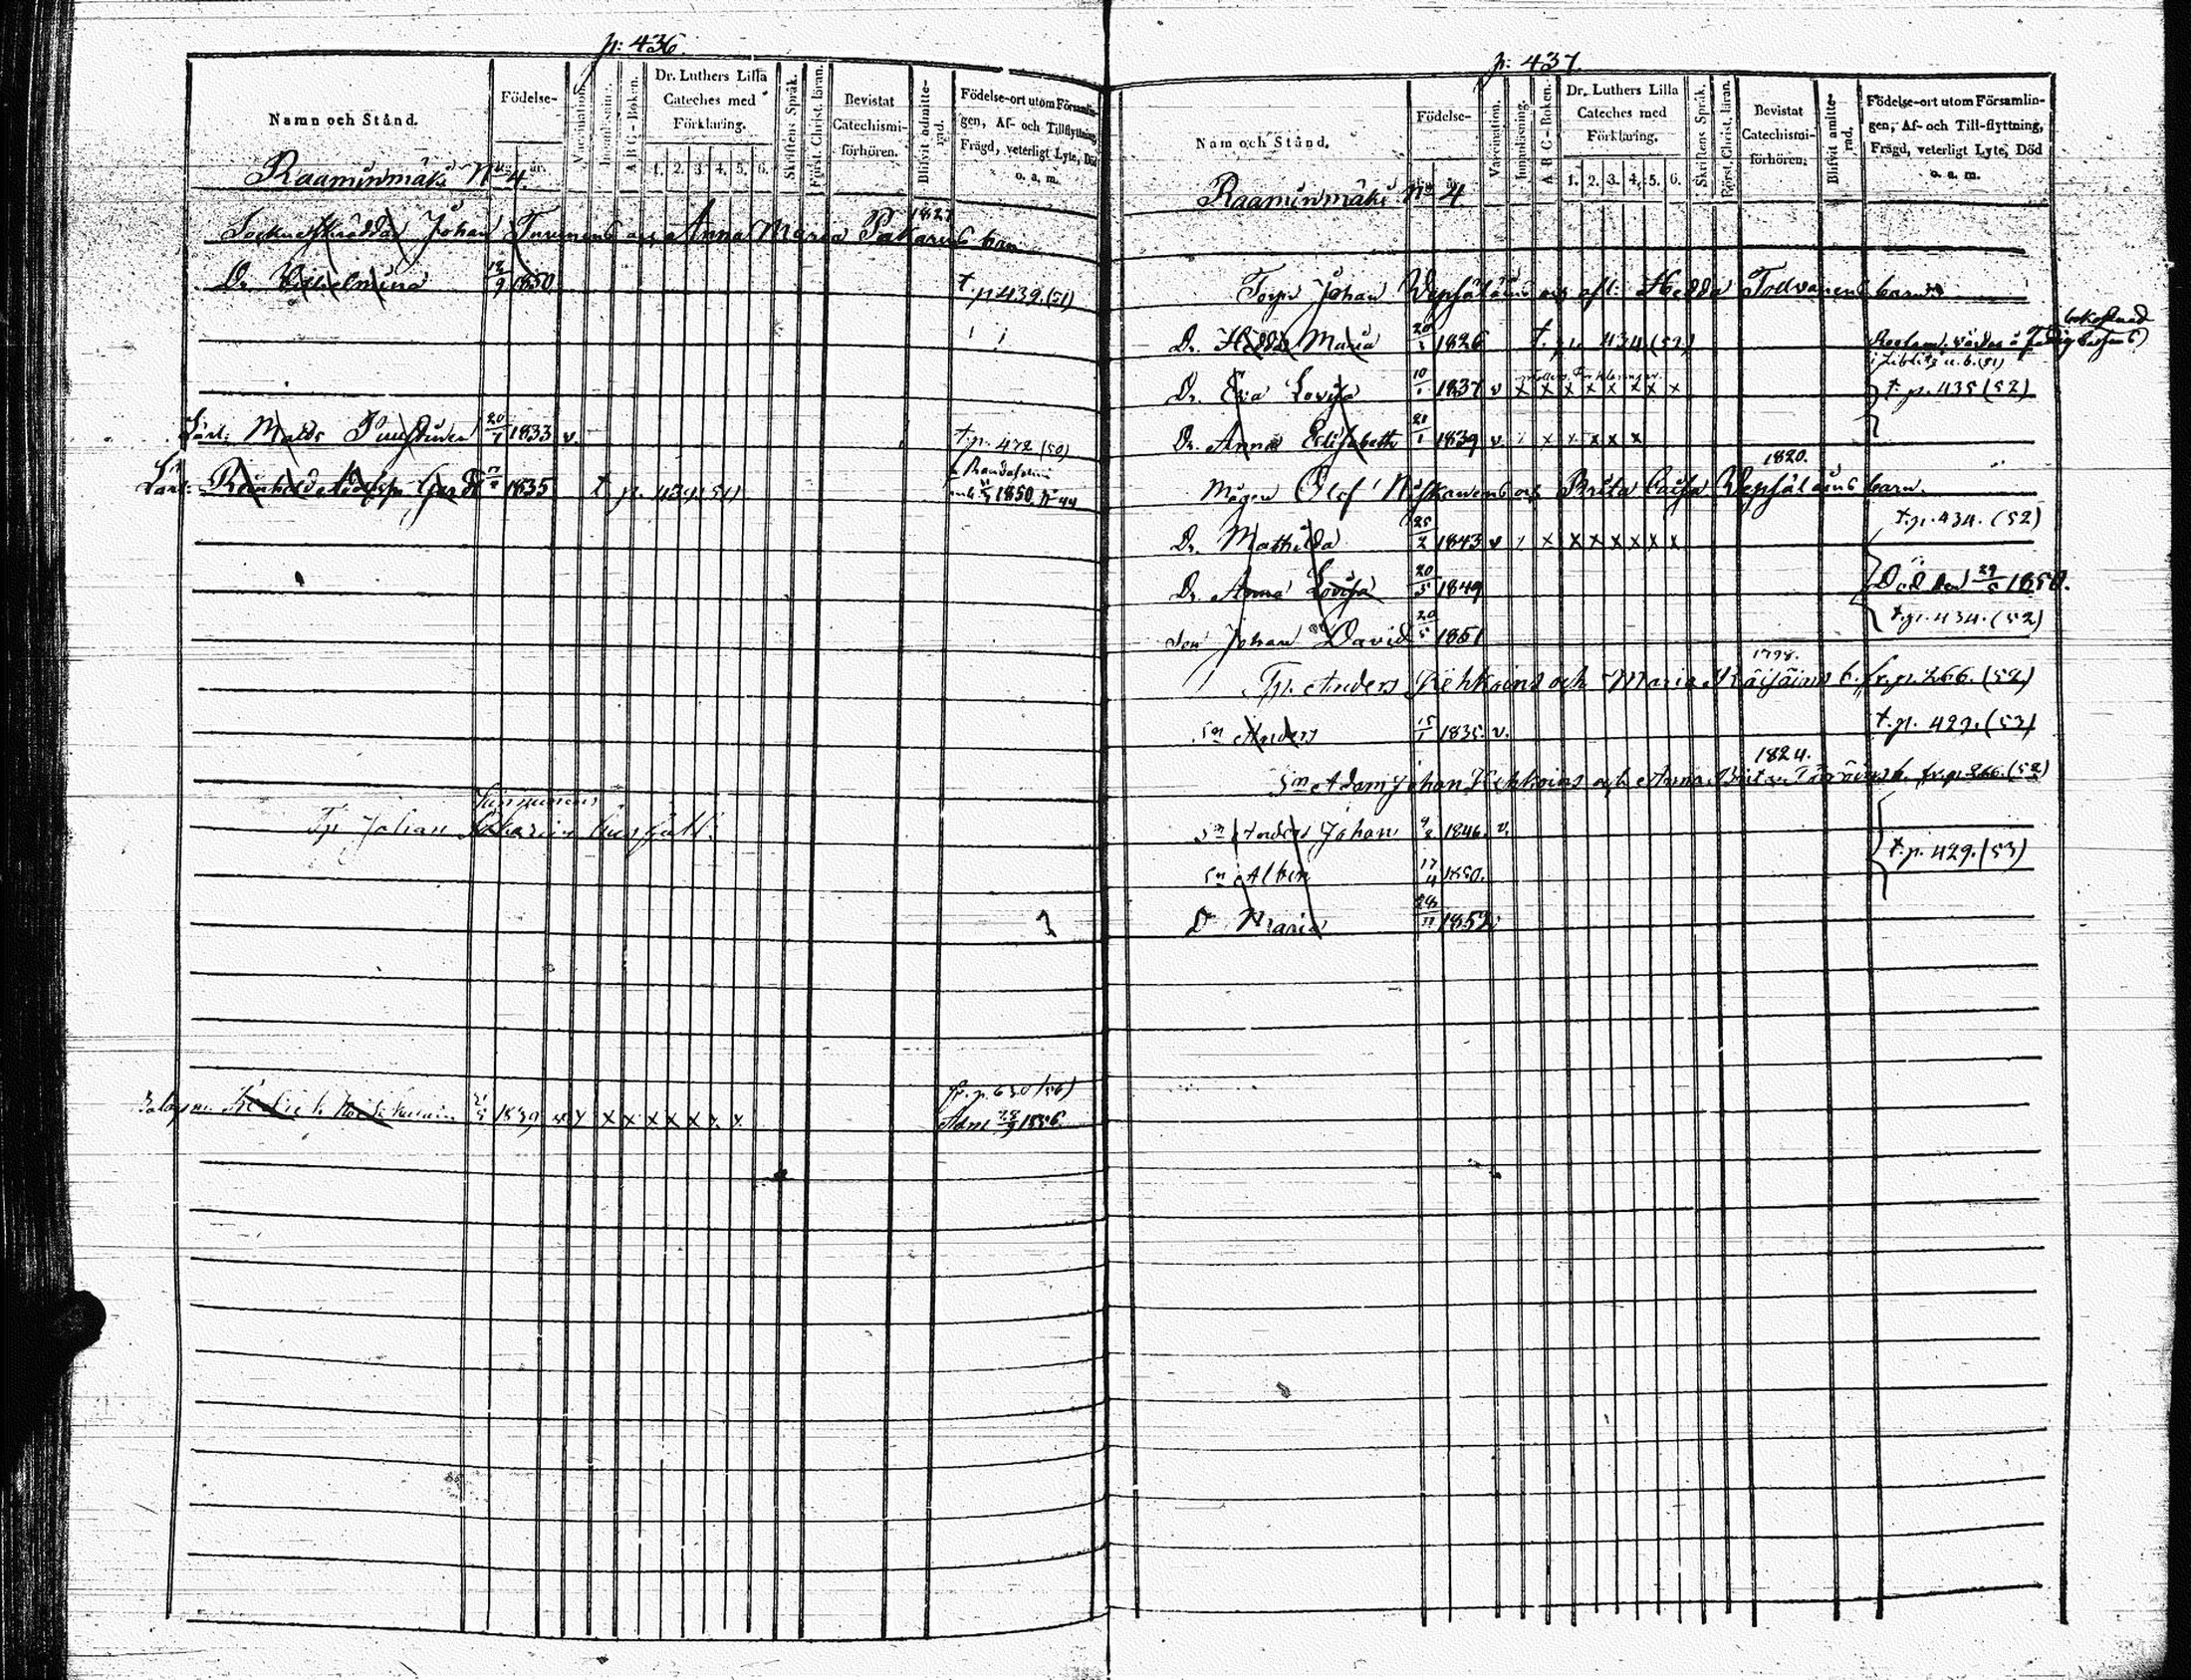 p: 436.
Namn och Stånd.
Födelse-
år.
Vaccination.
Innanläsning.
A B C - Boken.
Dr. Luthers Lilla
Cateches med
Förklaring.
1. 2. 3. 4. 5. 6.
Skriftens Språk.
Först. Christ. läran.
Bevistat
Catechismi-
förhören.
Blifvit admitte-
rad.
Födelse-ort utom Församlin-
gen, Af- och Tillflyttning,
Frägd, veterligt Lyte, Död
o. a. m.
Raaminmäki No 4
1827
Johan Turunens och Anna Maria Pakarins barn
Dr. Vilhelmina 12/9 1850 t. p. 439. (51)
Lärl: Matts 20/7 1833 v. t. p. 472 (50)
Lärl: Reinhold 1835 t. p.
1850. No 44
Tp Johan husfolk.
fr. p. 630 (56)
1839 x x x x x x x
Adm 1856
p: 437.
Namn och Stånd.
Födelse-
Vaccination.
Innanläsning.
A B C - Boken.
Dr. Luthers Lilla
Cateches med
Förklaring.
1. 2. 3. 4. 5. 6.
Skriftens Språk.
Först. Christ. läran.
Bevistat
Catechismi-
förhören.
Blifvit admitte-
rad.
Födelse-ort utom Församlin-
gen, Af- och Till-flyttning,
Frägd, veterligt Lyte, Död
o. a. m.
Raaminmäki No 4
Torp. Johan Vepsäläins och afl: Hedda Tolvanens barn
bekostnad
Dr. Hedda Maria 1826 t. p. 434 (52)
Dr. Eva Lovisa 10/1 1837 v x x x x x x x x t. p. 435 (52)
Dr. Anna Elisabeth 21/1 1839 v x x x x x
1820.
Mågen Olof Niskanens och Brita Caisa Vepsäläins barn.
t. p. 434. (52)
Dr. Mathilda 25/2 1843 v x x x x x x x
Dr. Anna Lovisa 20/5 1849 Död den 29/5 1850.
Son Johan David 20/5 1851 t. p. 434. (52)
1798.
Tp. Anders Kehkoins och Maria Räisäins b. fr. p. 266. (52)
Sn Anders 15/1 1835. v. t. p. 429. (53)
1824.
Sn Adam Johan Kehkoins och Anna fr. p. 266. (52)
Sn Anders Johan 9/8 1846. v.
t. p. 429. (53)
Sn Albin 17/4 1850.
Dr Maria 1852